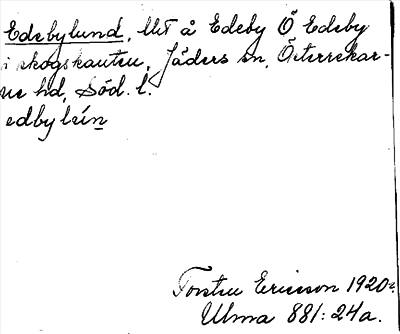 Edebylund, lht å Edeby Ö Edeby
i skogskanten, Jäders sn, Österrekar-
ne hd, Söd. l.
edbylún
Torsten Ericsson 1920
Ulma 881:24a.